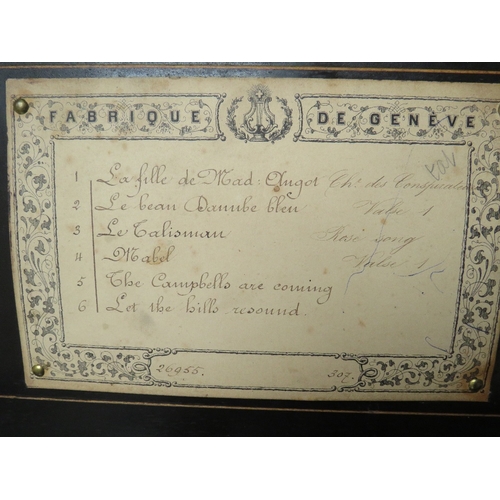 FABRIQUE DE GENÈVE
1 La fille de Mad. Angot Chr. des Conspirateurs
2 Le beau Danube bleu Valse 1
3 Le Talisman Rose song
4 Mabel Valse 1
5 The Campbells are coming
6 Let the hills resound
26955. 307.